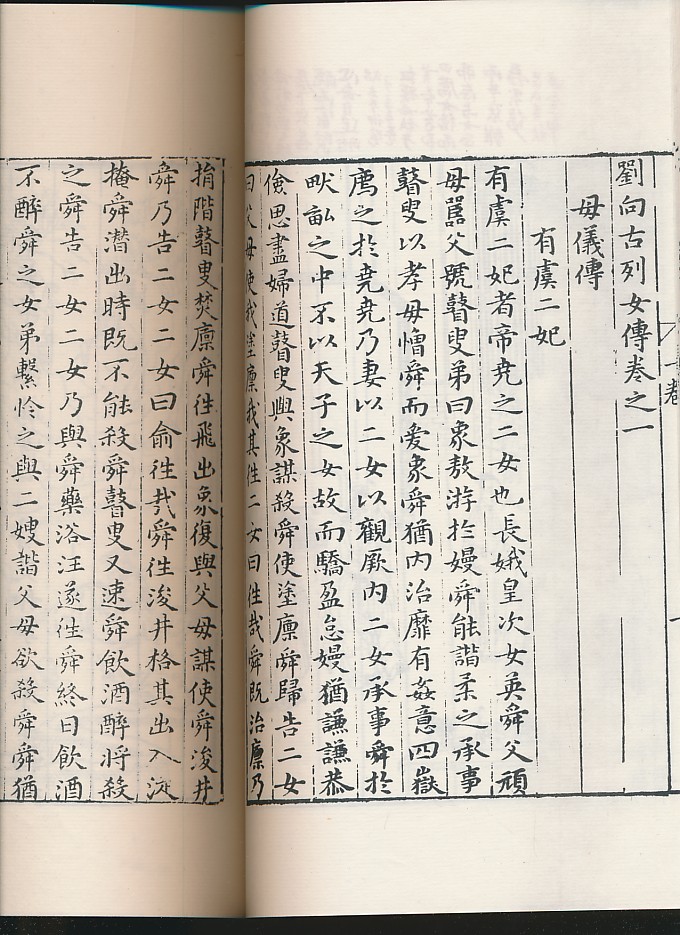 劉向古列女傳卷之一
母儀傳
有虞二妃
有虞二妃者帝堯之二女也長娥皇次女英舜父頑
母嚚父號瞽叟弟曰象敖游於嫚舜能諧柔之承事
瞽叟以孝母憎舜而愛象舜猶內治靡有姦意四嶽
薦之於堯堯乃妻以二女以觀厥內二女承事舜於
畎畝之中不以天子之女故而驕盈怠嫚猶謙謙恭
儉思盡婦道瞽叟與象謀殺舜使塗廩舜歸告二女
曰父母使我塗廩我其往二女曰往哉舜既治廩乃
捐階瞽叟焚廩舜往飛出象復與父母謀使舜浚井
舜乃告二女二女曰俞往哉舜往浚井格其出入從
掩舜潛出時既不能殺舜瞽叟又速舜飲酒醉將殺
之舜告二女二女乃與舜藥浴汪遂往舜終日飲酒
不醉舜之女弟繫怜之與二嫂諧父母欲殺舜舜猶